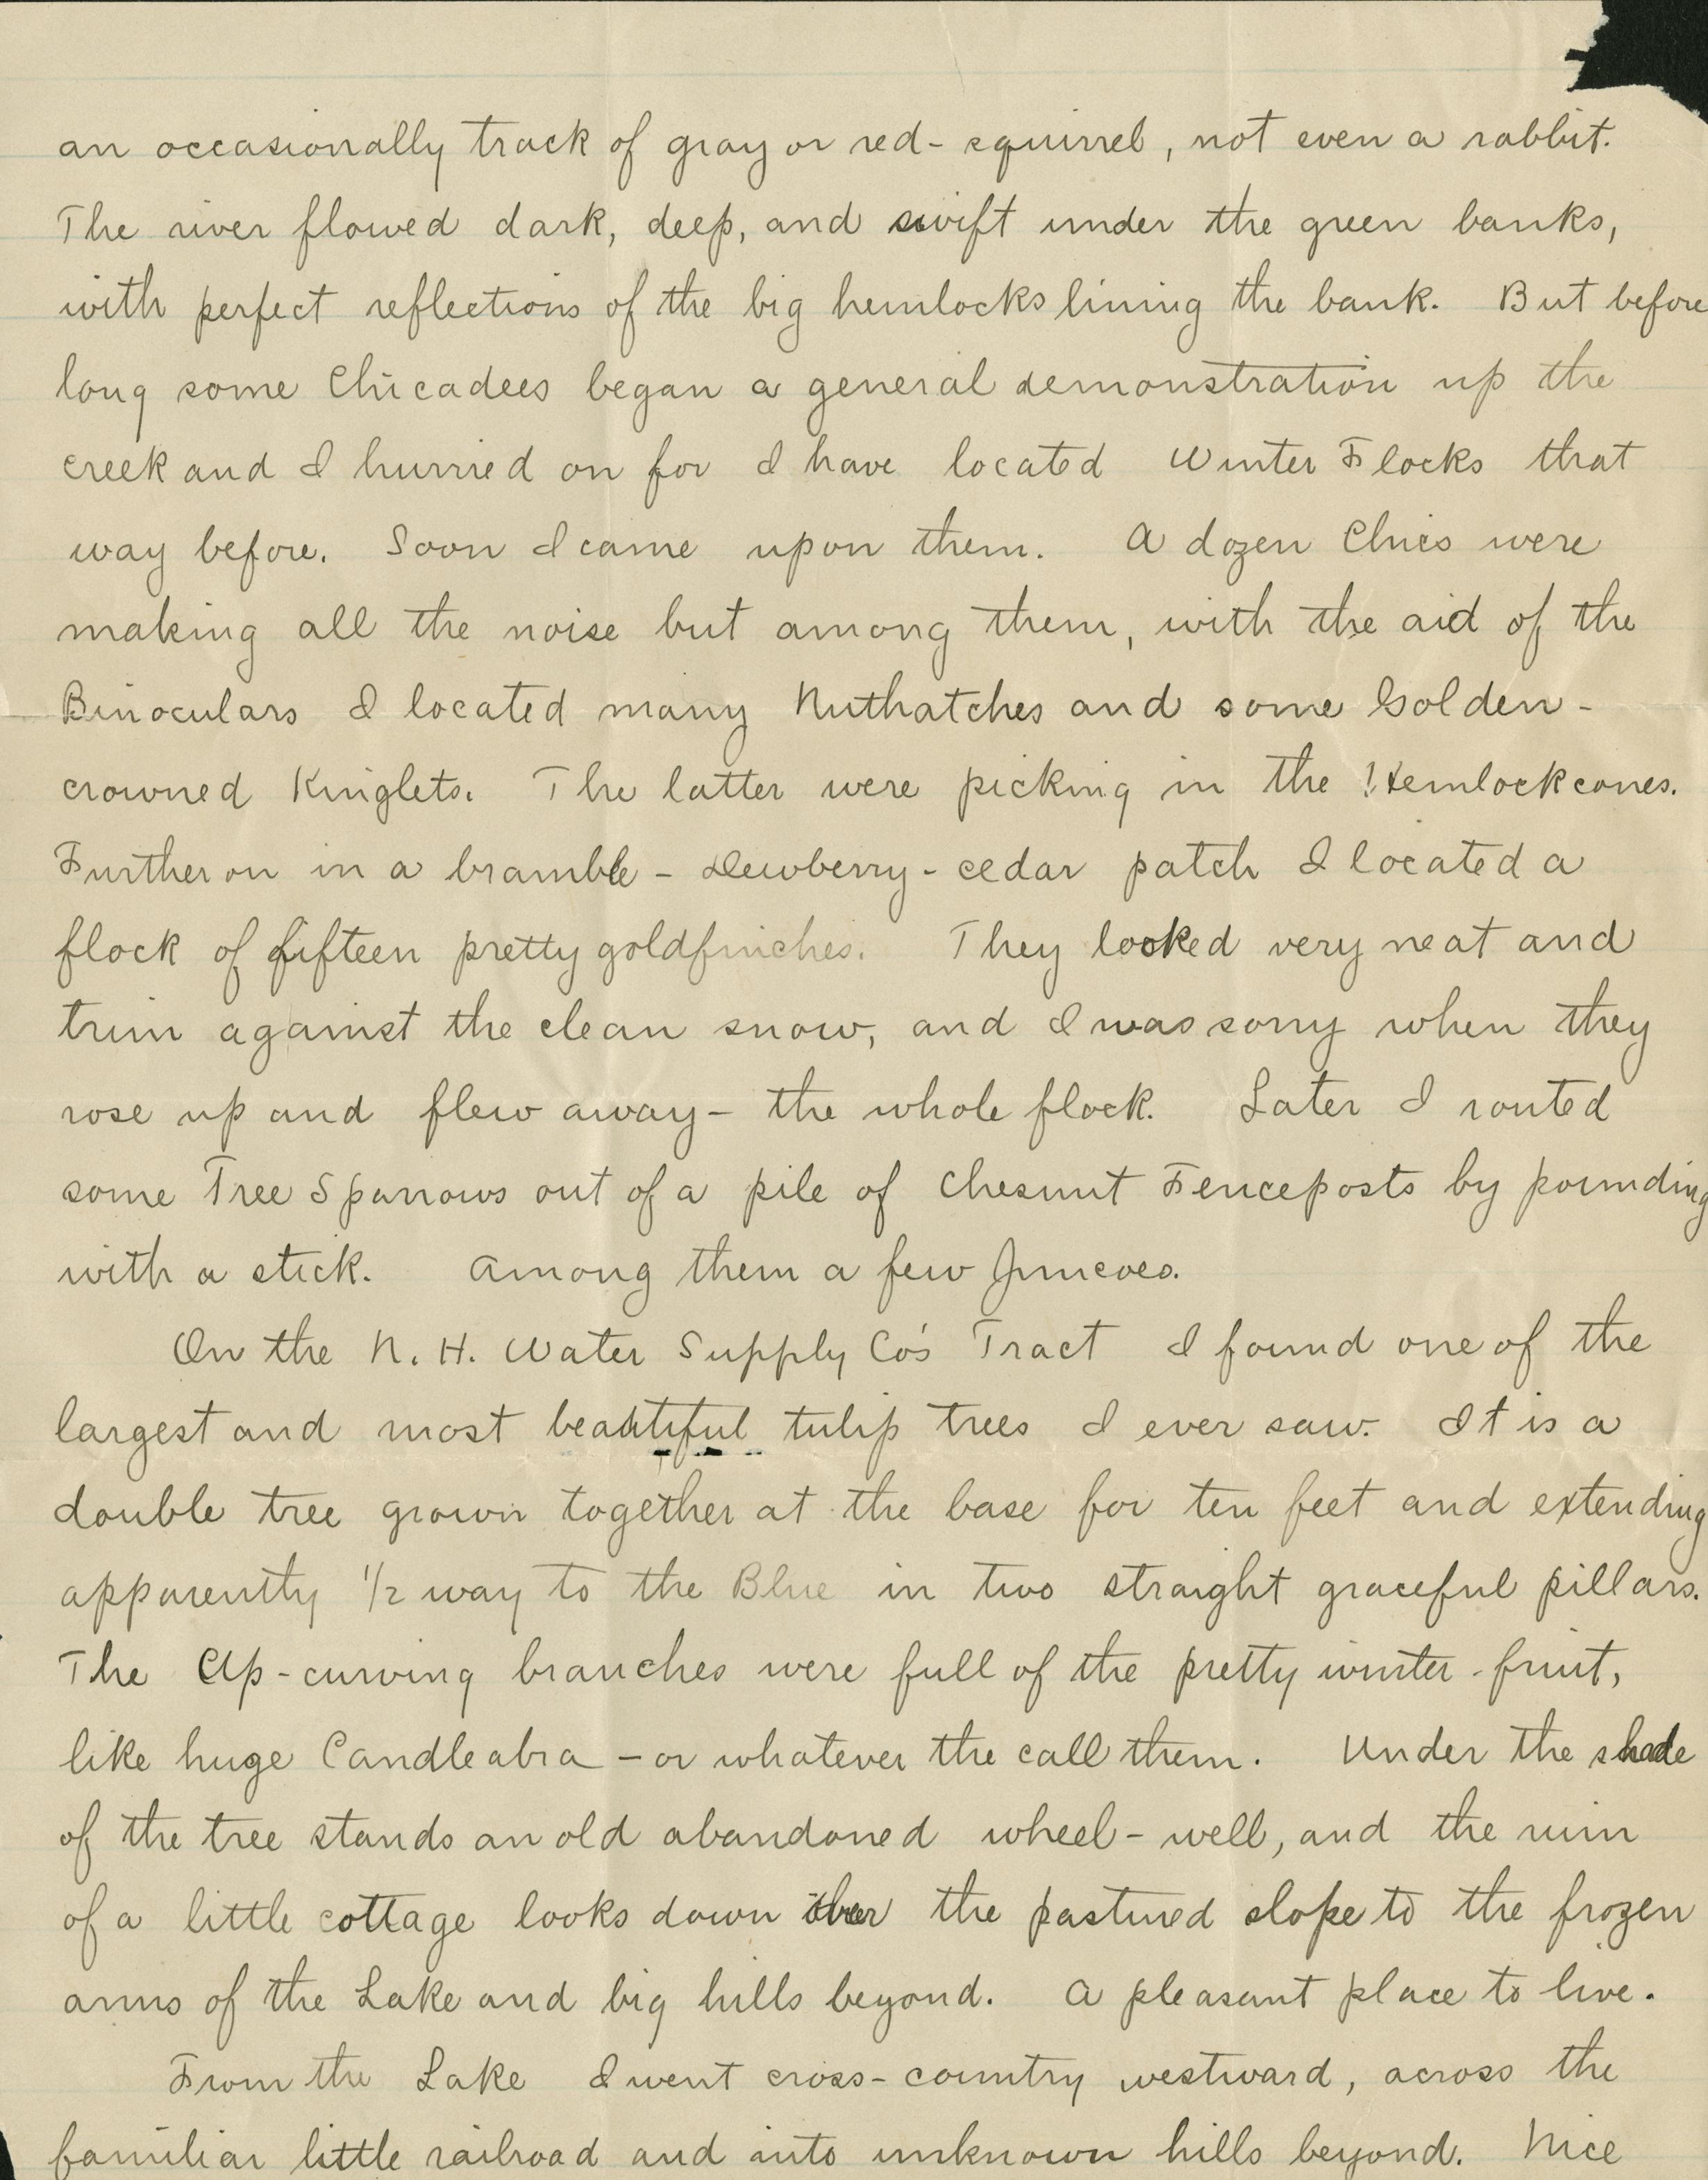 an occasionally track of gray or red-squirrel, not even a rabbit.
The river flowed dark, deep, and swift under the green banks,
with perfect reflections of the big hemlocks lining the bank. But before
long some Chicadees began a general demonstration up the
creek and I hurried on for I have located Winter Flocks that
way before. Soon I came upon them. A dozen Chics were
making all the noise but among them, with the aid of the
Binoculars I located many Nuthatches and some Golden-
crowned Kinglets. The latter were picking in the Hemlock cones.
Further on in a bramble - Dewberry - cedar patch I located a
flock of fifteen pretty goldfinches. They looked very neat and
trim against the clean snow, and I was sorry when they
rose up and flew away - the whole flock. Later I routed
some Tree Sparrows out of a pile of Chesnut Fenceposts by pounding
with a stick. Among them a few Juncoes.
On the N. H. Water Supply Co's Tract I found one of the
largest and most beautiful tulip trees I ever saw. It is a
double tree grown together at the base for ten feet and extending
apparently 1/2 way to the Blue in two straight graceful pillars.
The Up-curving branches were full of the pretty winter-fruit,
like huge Candleabra - or whatever the call them. Under the shade
of the tree stands an old abandoned wheel-well, and the ruin
of a little cottage looks down over the pastured slope to the frozen
arms of the Lake and big hills beyond. A pleasant place to live.
From the Lake I went cross-country westward, across the
familiar little railroad and into unknown hills beyond. Nice